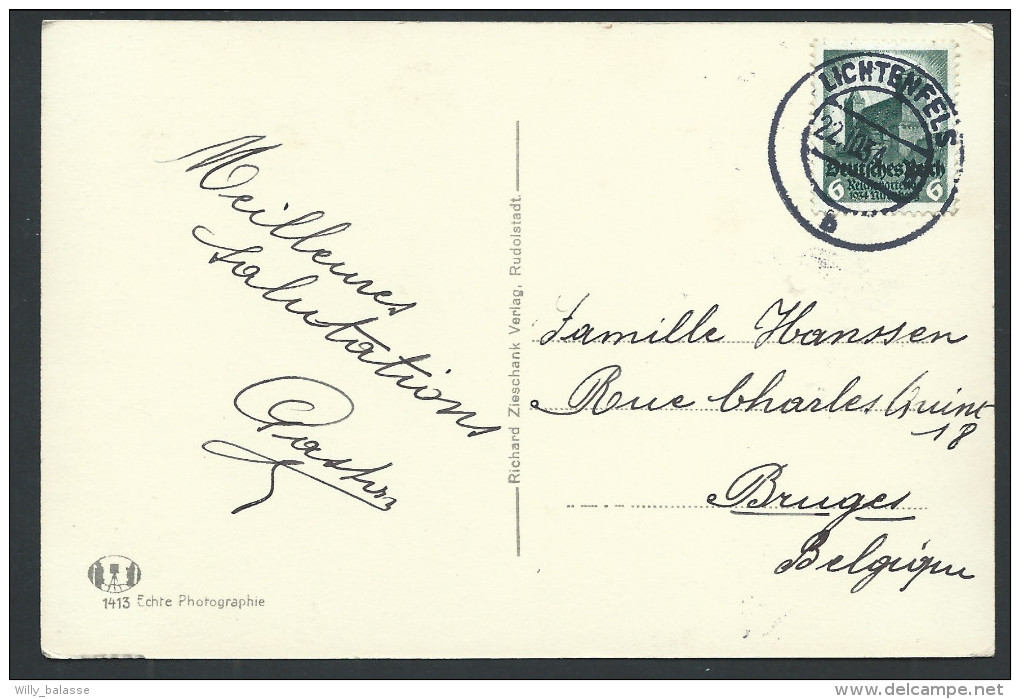 LICHTENFELS
22.10.34
b
Deutsches Reich
6
6
1934
Meilleures
salutations
Gaston
Richard Zieschank Verlag, Rudolstadt.
Famille Hanssen
Rue Charles Quint
18
Bruges
Belgique
1413 Echte Photographie
Willy_balasse
delcampe.net